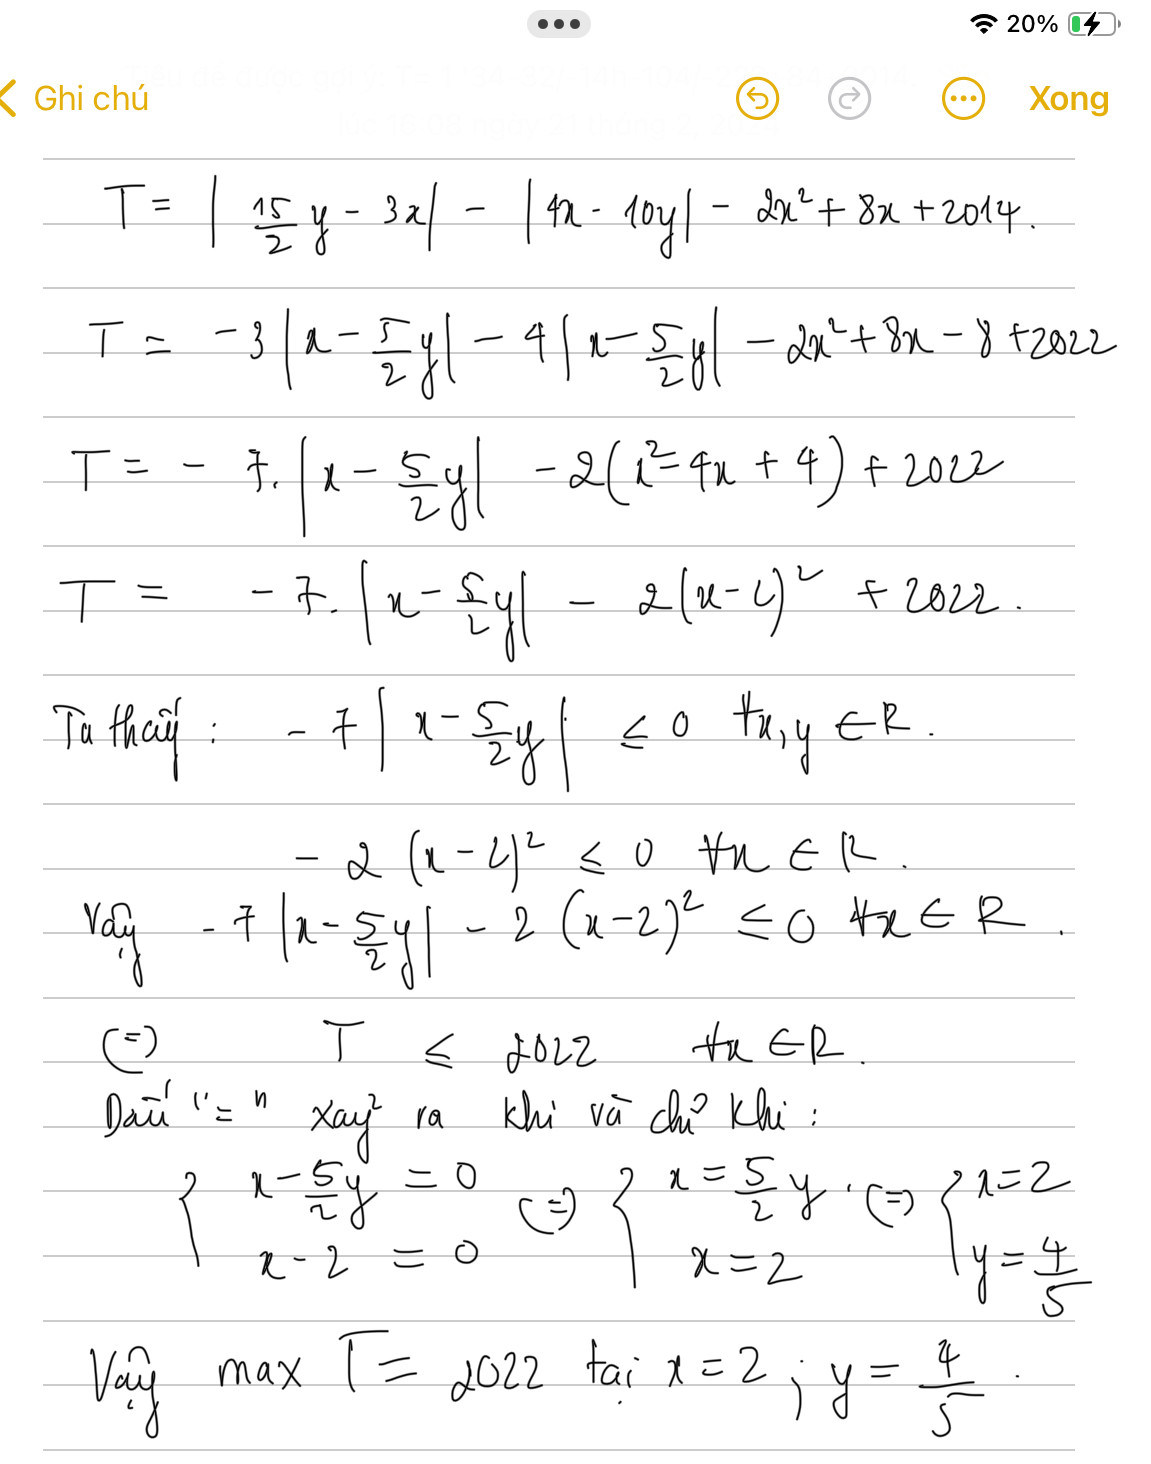 20%
Ghi chú Xong
T = | 15/2 y - 3x| - |4x - 10y| - 2x² + 8x + 2014.
T = -3 |x - 5/2 y| - 4 |x - 5/2 y| - 2x² + 8x - 8 + 2022
T = - 7. |x - 5/2 y| - 2(x² - 4x + 4) + 2022
T = - 7. |x - 5/2 y| - 2(x - 2)² + 2022.
Ta thấy : - 7 | x - 5/2 y | ≤ 0 ∀x, y ∈ R.
- 2 (x - 2)² ≤ 0 ∀x ∈ R.
Vậy - 7 |x - 5/2 y| - 2 (x - 2)² ≤ 0 ∀x ∈ R.
(=) T ≤ 2022 ∀x ∈ R.
Dấu "=" xảy ra khi và chỉ khi :
{ x - 5/2 y = 0 (=) { x = 5/2 y . (=) { x = 2
x - 2 = 0 x = 2 y = 4/5
Vậy max T = 2022 tại x = 2 ; y = 4/5 .